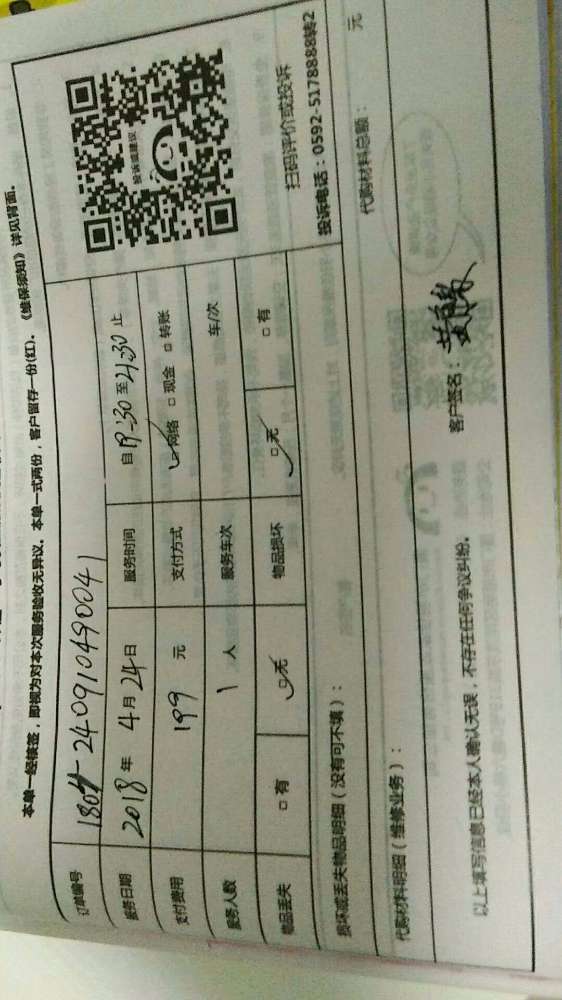 本单一经核签，即视为对本次服务验收无异议。本单一式两份，客户留存一份(红)。《维保须知》详见背面。
订单编号
服务日期 2018 年 4 月 24 日 服务时间 自 19:30 至 21:30 止
支付费用 199 元 支付方式 ☑ 网络 □ 现金 □ 转账
服务人数 1 人 服务车次 车/次
物品丢失 □ 有 ☑ 无 物品损坏 ☑ 无 □ 有
投诉或建议
扫码评价或投诉
投诉电话：0592-5178888转2
损坏或丢失物品明细（没有可不填）：
代购材料明细（维修业务）： 代购材料总额： 元
以上填写信息已经本人确认无误，不存在任何争议纠纷。 客户签名：